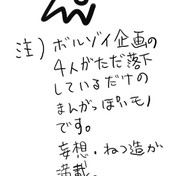 注）ボルゾイ企画の
４人がただ落下
しているだけの
まんがっぽいモノ
です。
妄想・ねつ造が
満載。